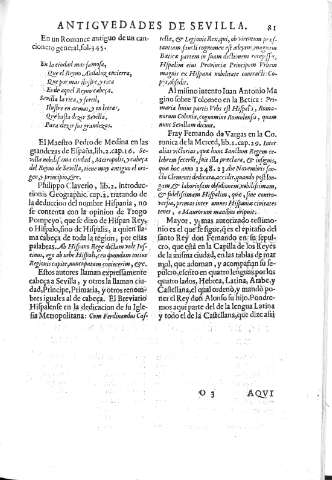 ANTIGVEDADES DE SEVILLA. 81
En un Romance antiguo de un can-
cionero general, fol.345.
En la ciudad mas famosa,
Que el Reyno
Que por mas dichosa, y rica
Es de aquel Reyno cabeça,
Sevilla la rica, y fertil,
Ilustre en armas, y en letras,
Que basta dezir Sevilla
Para dezir sus grandezas.
El Maestro Pedro de Medina en las
grandezas de España, lib.2.cap.16. Se-
villa nobilissima ciudad, Metropoli, y cabeça
del Reyno de Sevilla, tiene muy antiguo el ori-
gen, y principio, &c.
Philippo Claverio, lib.2. introduc-
tionis Geographic. cap.2. tratando de
la deduccion del nombre Hispania, no
se contenta con la opinion de Trogo
Pompeyo, que se dize de Hispan Rey,
o Hispalo, sino de Hispalis, a quien lla-
ma cabeça de toda la region, por estas
palabras. Ab Hispano Rege dictum volt Ius-
tinus, ego ab urbe Hispali,
Regionis capite, nuncupatam coniecerim, &c.
Estos autores llaman expressamente
cabeça a Sevilla, y otros la llaman ciu-
dad, Principe, Primaria, y otros renom-
bres iguales al de cabeça. El Breviario
Hispalense en la dedicacion de su Igle-
sia Metropolitana: Cum Ferdinandus Cas-
tellæ, & Legionis Rex, qui, ob virtutem præs-
tantiam sancti cognomen est adeptus, magnam
Bæticæ partem in suam ditionem redegisset,
Hispalim eius Provinciæ Principem Urbem
magnis ex Hispania nobilitate contractis Co-
pijs, obsidet.
Al mismo intento Iuan Antonio Ma
gino sobre Tolomeo en la Betica: Pri-
maria hunc partis Urbs est Hispali, Romu-
lorum Colonia, cognomine Romulensis, quam
nunc Sevillam dicunt.
Fray Fernando de Vargas en la Co-
ronica de la Merced, lib.1.cap.12. inter
alias victorias, que hunc Sanctum Regem ce-
lebrem fecerè, fuit illa præclara, & insignis,
que hoc anno 1248.23. die Novembris san-
cto Clementi dedicata, accidit, quando post lon-
gam, & laboriosam obsidionem, nobilissimam,
& famosissimam Hispalim, quæ, sine contro-
versia, primas inter omnes Hispaniæ civitates
tenet, è Maurorum manibus eripuit.
Mayor, y mas autorizado testimo-
nio es el que se sigue, q̃ es el epitafio del
santo Rey don Fernando en su sepul-
cro, que està en la Capilla de los Reyes
de la misma ciudad, en las tablas de mar
mol, que adornan, y acompañan su se-
pulcro, escrito en quatro lenguas por los
quatro lados, Hebrea, Latina, Arabe, y
Castellana, el qual ordenò, y mandò po-
ner el Rey don Alonso su hijo. Pondre-
mos aqui parte del de la lengua Latina
y todo el de la Castellana, que dize assi
O 3 AQVI